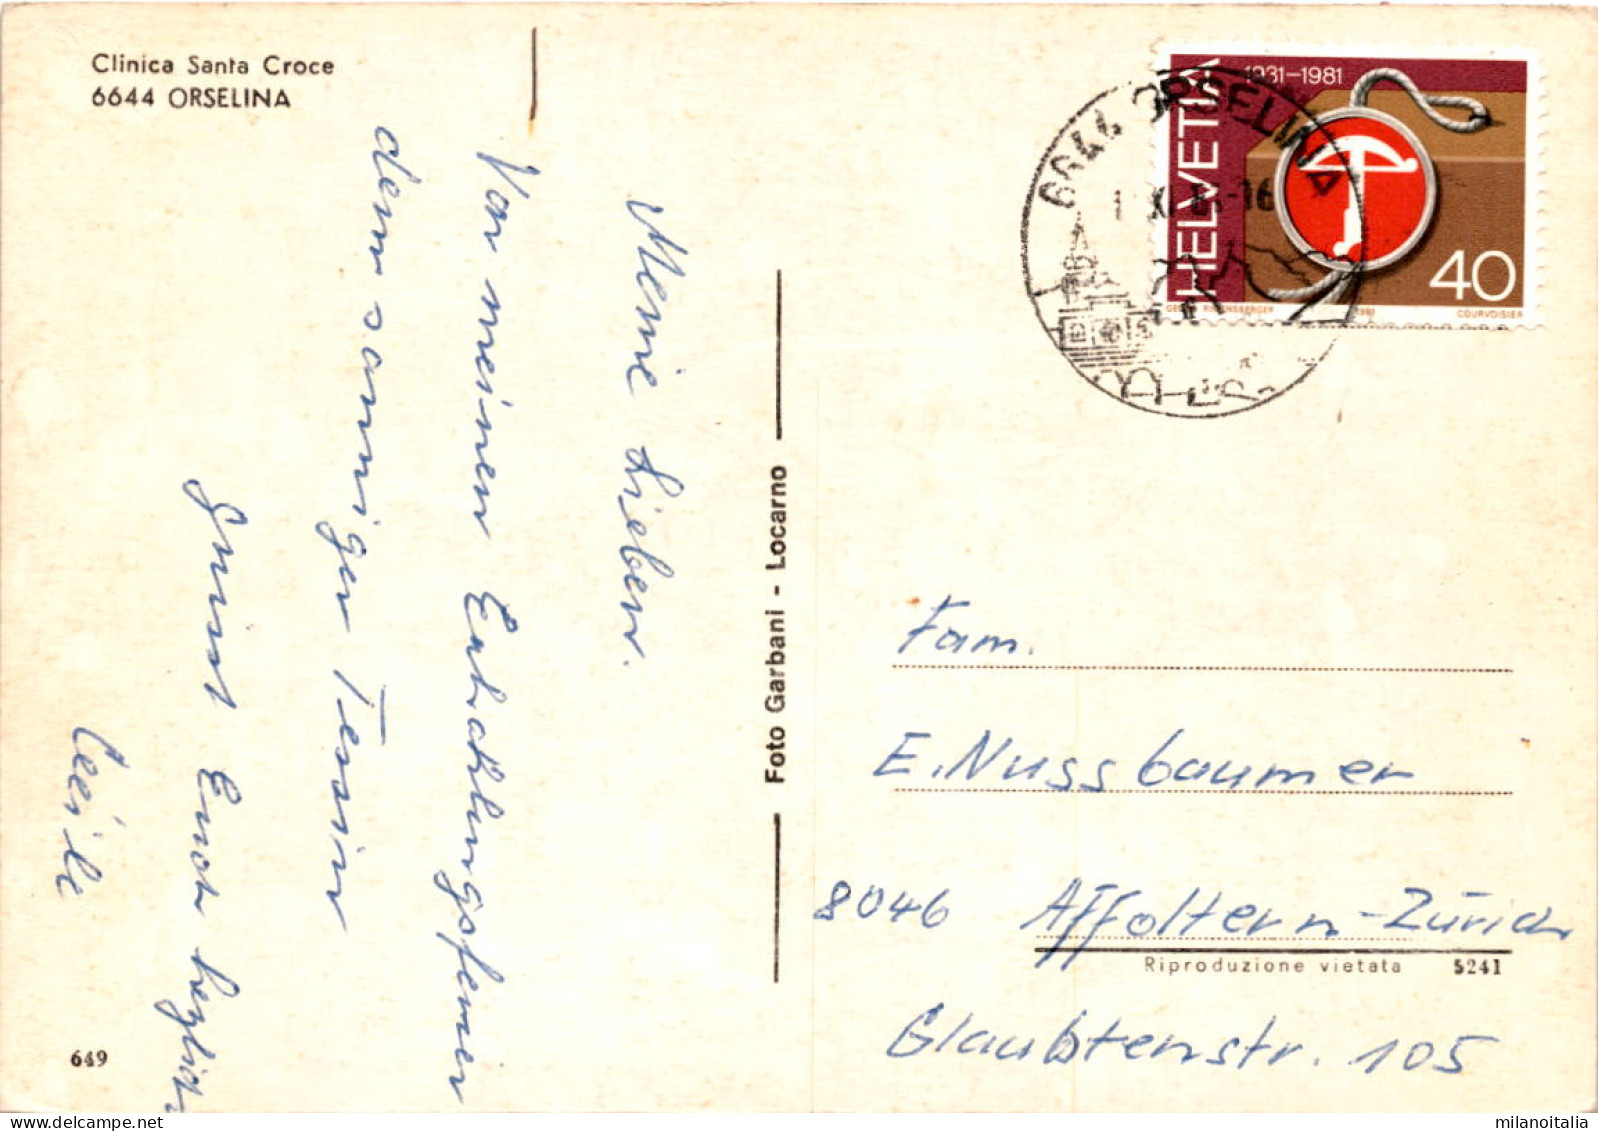 Clinica Santa Croce
6644 ORSELINA
Meine Lieben.
Von meinen Erholungsferien
dem sonnigen Tessin
grüsst Euch herzlich
Cécile
649
Foto Garbani - Locarno
HELVETIA
1931-1981
40
COURVOISIER
6644 ORSELINA
Fam.
E. Nussbaumer
8046 Affoltern-Zürich
Riproduzione vietata 5241
Glaubtenstr. 105
milanoitalia